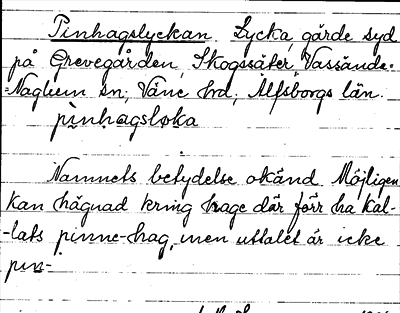 Pinhagslyckan. Lycka, gärde syd
på Grevegården, Skogssäter, Vassända-
-Naglum sn, Väne hd, Älfsborgs län.
pinhagsløka
Namnets betydelse okänd. Möjligen
kan hägnad kring hage där förr ha kal-
-lats pinne-hag, men uttalet är icke
pin-